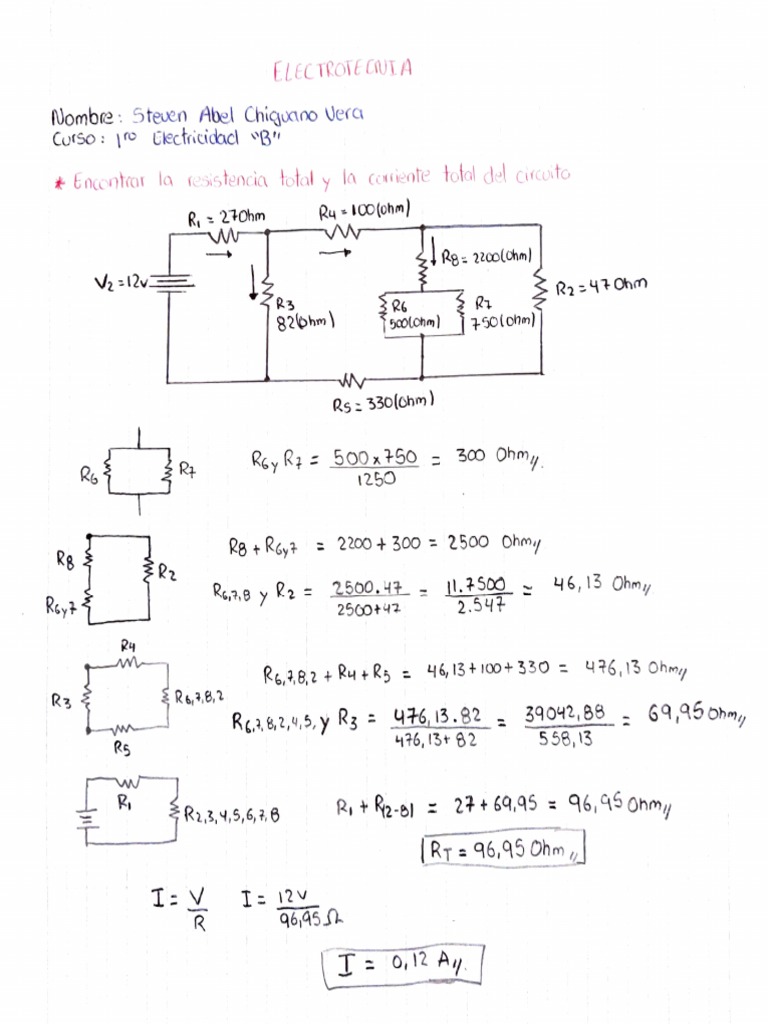 ELECTROTECNIA
Nombre: Steven Abel Chiguano Vera
Curso: 1ro Electricidad "B"
* Encontrar la resistencia total y la corriente total del circuito
R1 = 27Ohm
R4 = 100(Ohm)
V2 = 12v
R3
82(Ohm)
R8 = 2200(Ohm)
R6
500(Ohm)
R7
750(Ohm)
R2 = 47Ohm
R5 = 330(Ohm)
R6
R7
R6 y R7 = 500x750 / 1250 = 300 Ohm//.
R8
R6y7
R2
R8 + R6y7 = 2200 + 300 = 2500 Ohm//
R6,7,8 y R2 = 2500.47 / 2500+47 = 11.7500 / 2.547 = 46,13 Ohm//
R4
R3
R6,7,8,2
R5
R6,7,8,2 + R4 + R5 = 46,13+100+330 = 476,13 Ohm//
R6,7,8,2,4,5, y R3 = 476,13.82 / 476,13+82 = 39042,88 / 558,13 = 69,95 Ohm//
R1
R2,3,4,5,6,7,8
R1 + R(2-8) = 27+69,95 = 96,95 Ohm//
RT = 96,95 Ohm//
I = V / R I = 12V / 96,95 Ω
I = 0,12 A//.